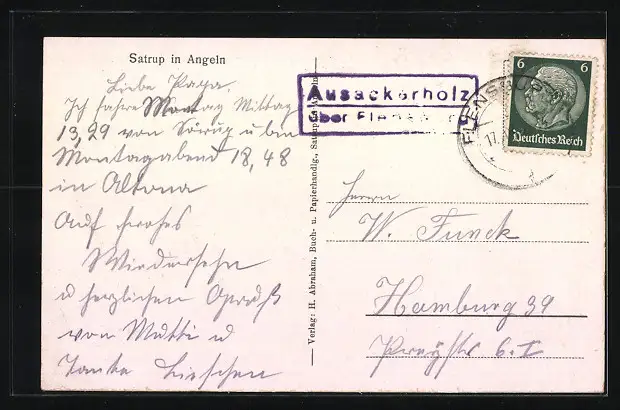 Satrup in Angeln
Liebe Papa.
Ich fahre Montag Mittag
13,29 von Sörup u bin
Montagabend 18,48
in Altona
Auf frohes
Wiedersehn
u herzlichen Gruß
von Mutti u
Tante Lieschen
Verlag: H. Abraham, Buch- u. Papierhandlg., Satrup in Angeln
Ausackerholz
über Flensburg
FLENSBURG
17.
6 6
Deutsches Reich
Herrn
W. Funck
Hamburg 39
6. I